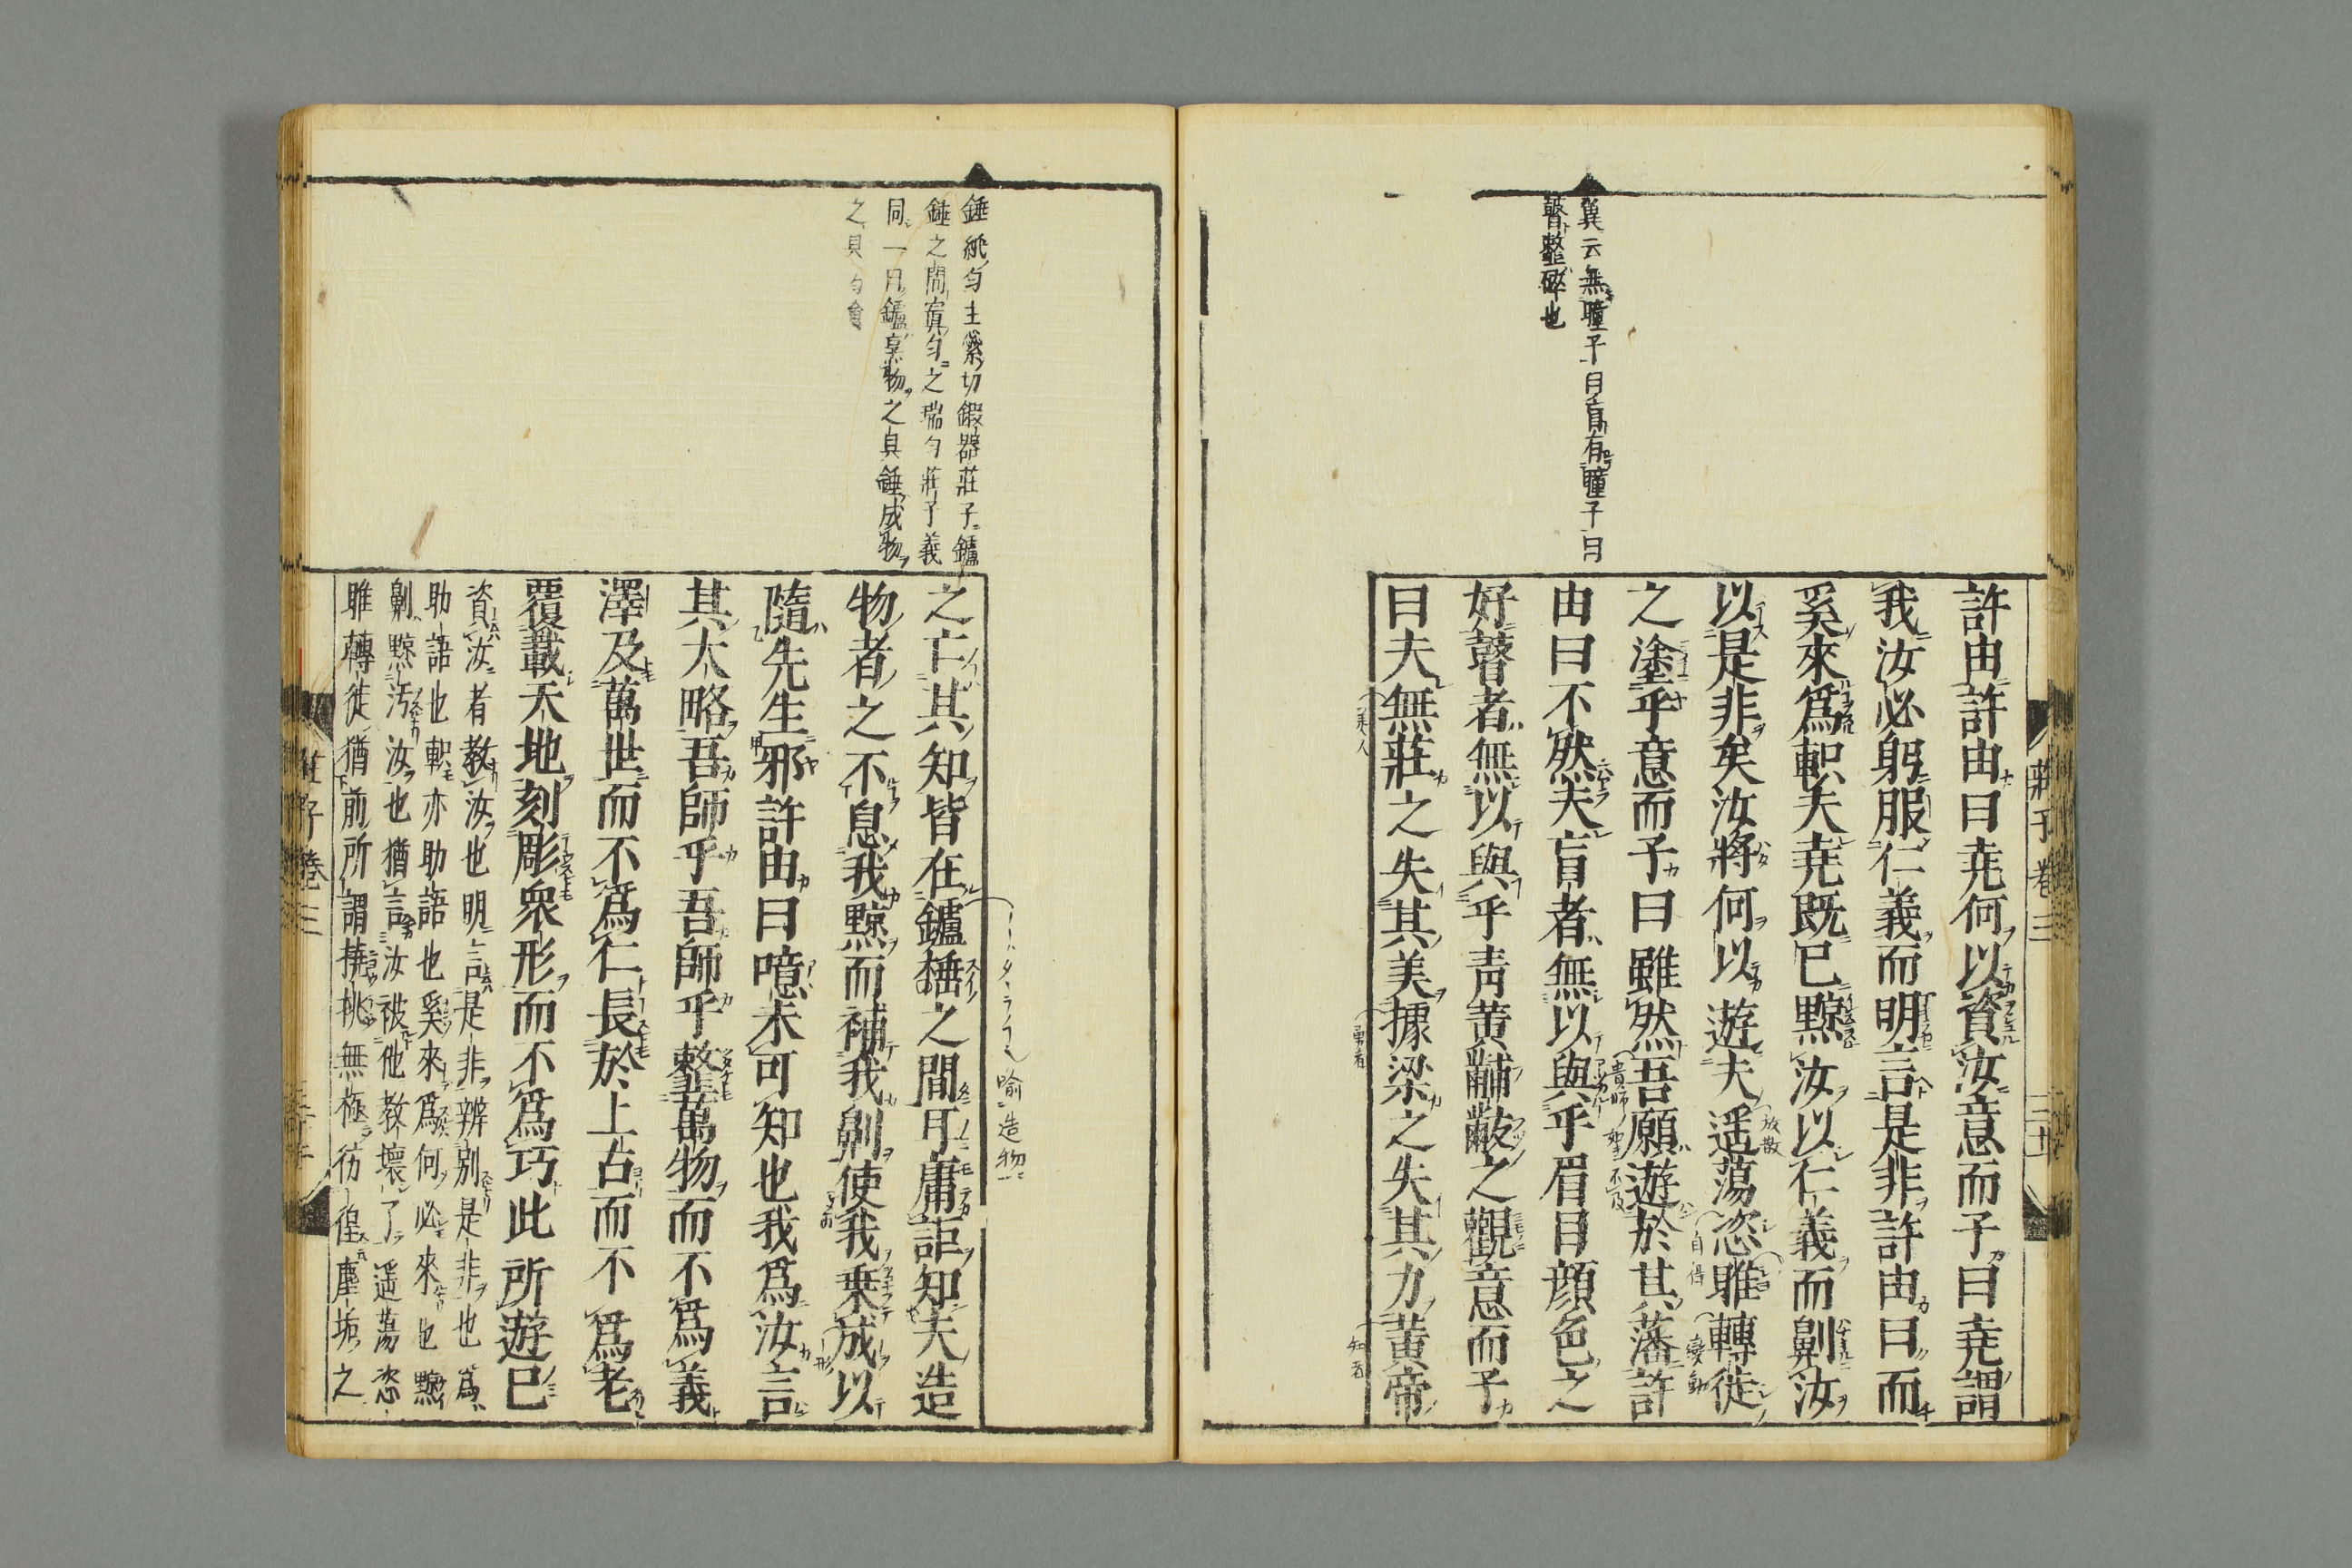 莊子卷三
冀云無瞳子曰盲有瞳子曰
瞽整碎也
許由許由曰尭何以資汝意而子曰尭謂
我汝必躬服仁義而明言是非許由曰而
奚來爲軹夫尭既已黥汝以仁義而劓汝
以是非矣汝將何以遊夫遥蕩恣睢轉徙
之塗乎意而子曰雖然吾願遊於其藩許
由曰不然夫盲者無以與乎眉目顔色之
好瞽者無以與乎青黄黼黻之觀意而子
曰夫無莊之失其美據梁之失其力黄帝
放散
自得
變動
美人
勇者
錘綞匀主縈切鍜器莊子鑪
錘之間寘匀之瑞匀莊子義
同一曰鑪烹物之具錘成物
之亡其知皆在鑪棰之間耳庸詎知夫造
物者之不息我黥而補我劓使我乗成以
隨先生邪許由曰噫未可知也我爲汝言
其大略吾師乎吾師乎䪡萬物而不爲義
澤及萬世而不爲仁長於上古而不爲老
覆載天地刻彫衆形而不爲巧此所遊已
資汝者教汝也明言是非辨别是非也爲
助語也軹亦助語也奚來爲何必來也黥
劓黥汚汝也猶言汝被他教壞了遥蕩恣
睢轉徙猶前所謂撓挑無極彷徨塵垢之
喩造物
莊子卷三